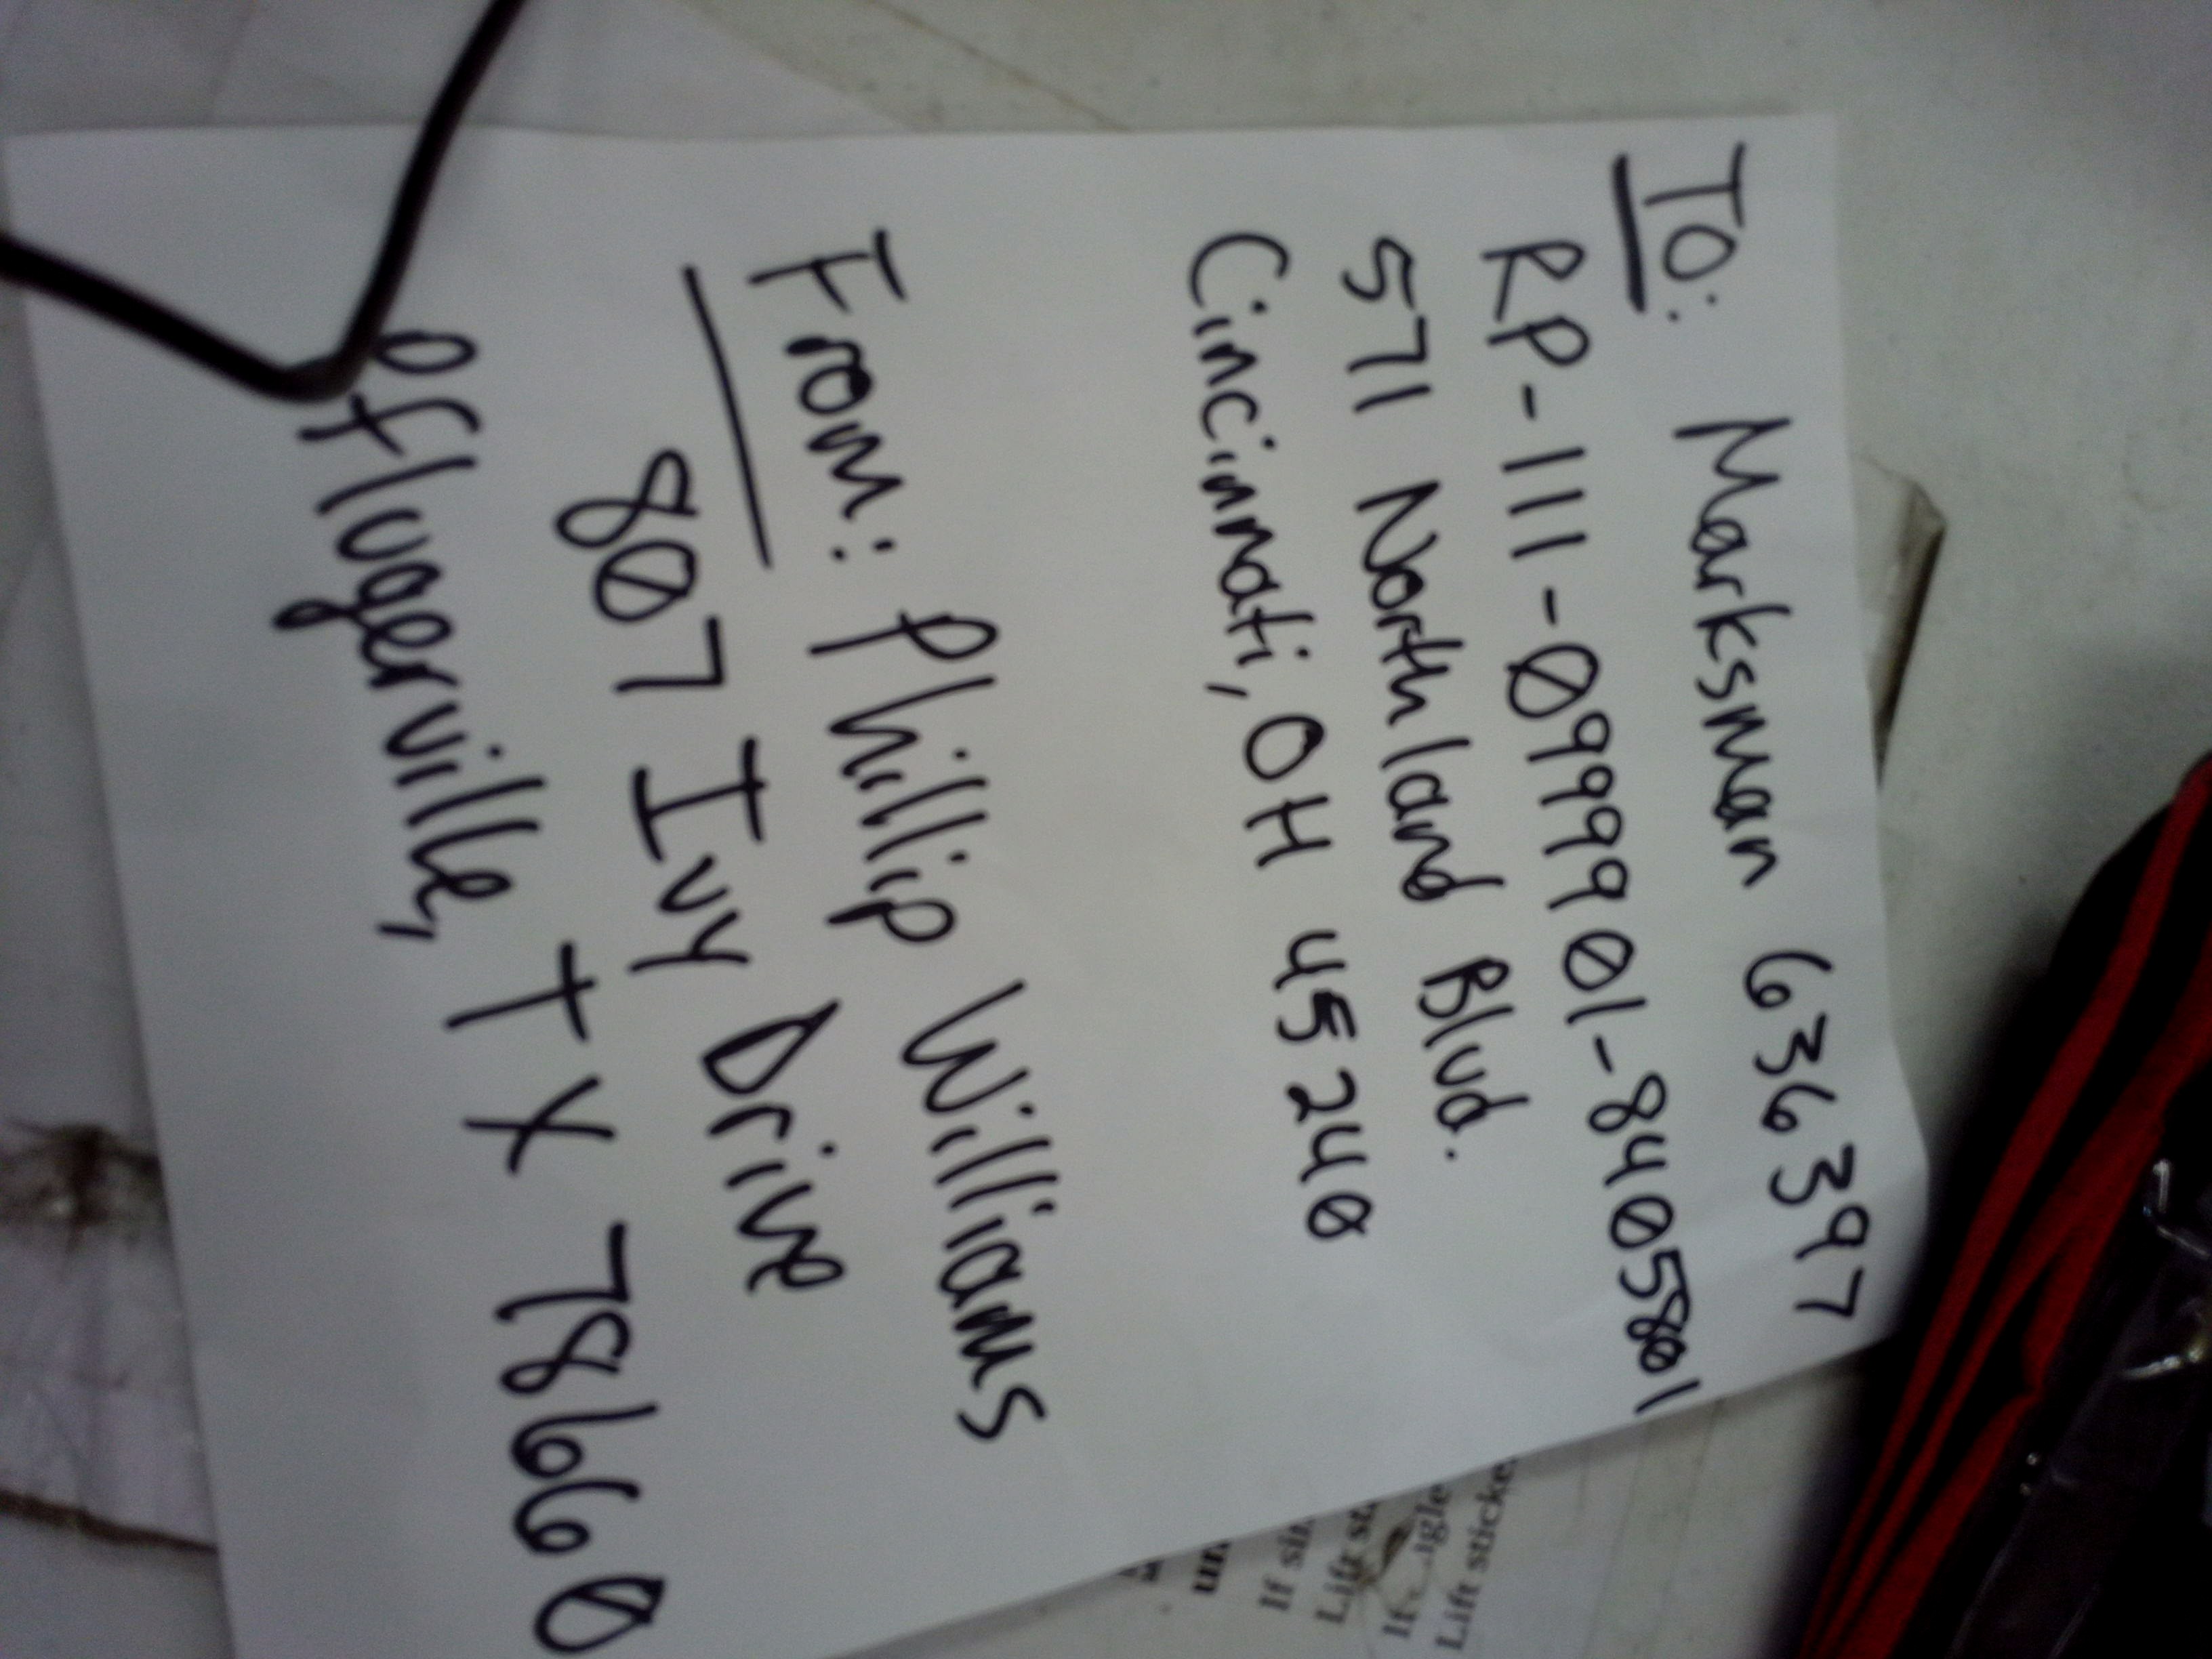 To: Marksman 636397
RP-111-0999901-8405801
571 Northland Blvd.
Cincinnati, OH 45240
From: Phillip Williams
807 Ivy Drive
Pflugerville, TX 78660
un
If sin
Lift st
If
gle
Lift sticke